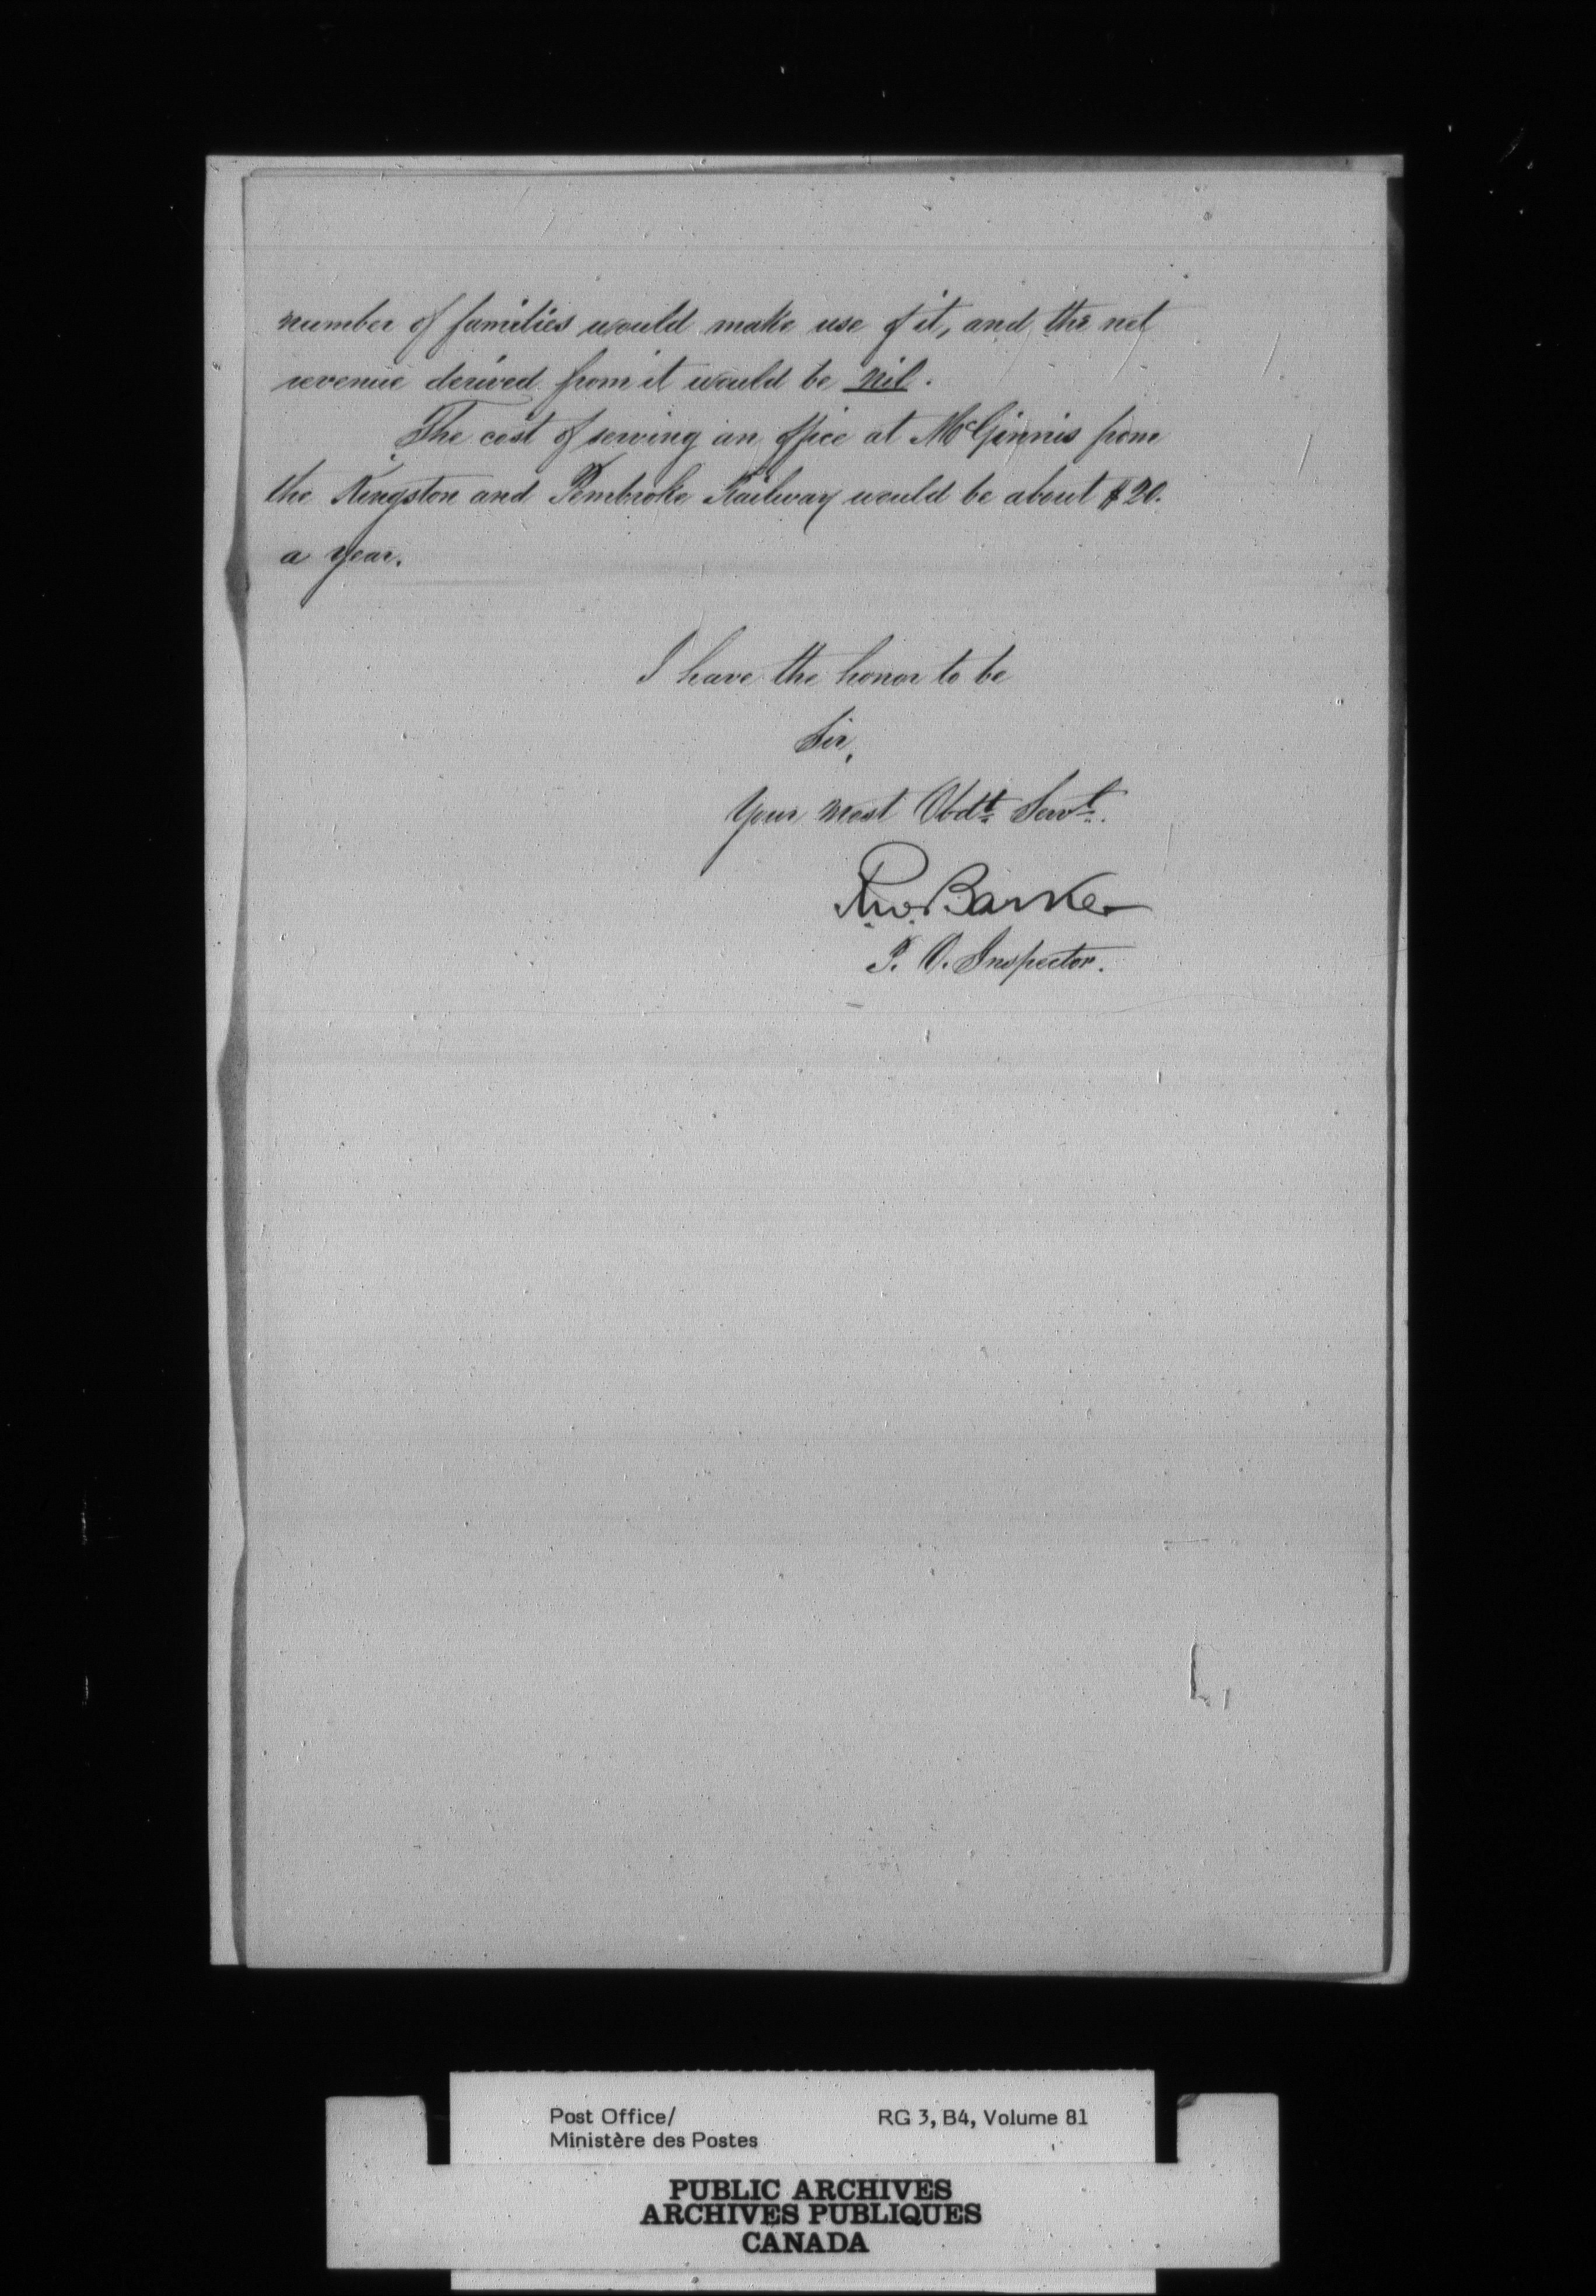 number of families would make use of it, and the net
revenue derived from it would be nil.
The cost of serving an office at McGinnis from
the Kingston and Pembroke Railway would be about $20.
a year.
I have the honor to be
Sir,
Your most Obdt Servt.
R.W. Barker
P. O. Inspector.
Post Office/ RG 3, B4, Volume 81
Ministère des Postes
PUBLIC ARCHIVES
ARCHIVES PUBLIQUES
CANADA